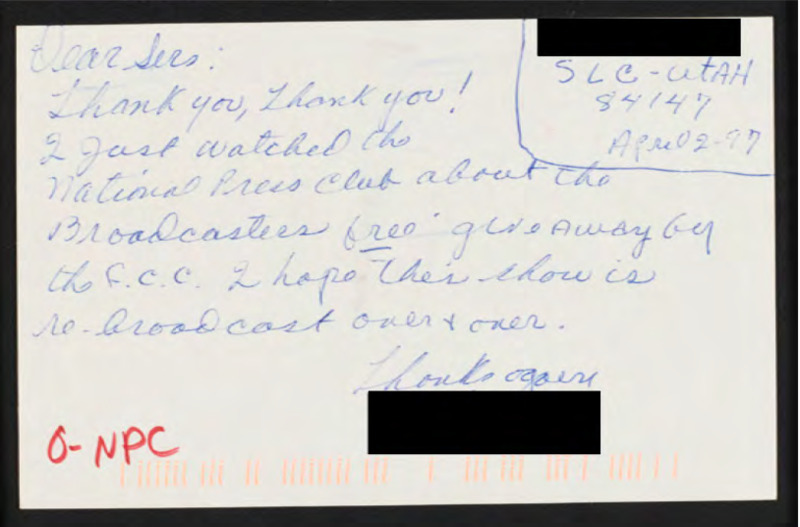 SLC-UtAH
84147
April 2-97
Dear Sirs:
Thank you, Thank you!
I just watched the
National Press Club about the
Broadcasters free giveaway by
the F.C.C. I hope this show is
re-broadcast over & over.
Thanks again
O-NPC